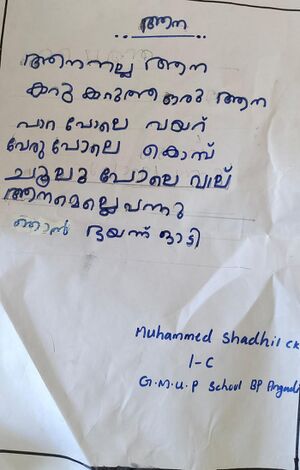 ആന
ആനനല്ല ആന
കറു കറുത്ത ഒരു ആന
പാറ പോലെ വയറ്
വേരു പോലെ കൊമ്പ്
ചൂലു പോലെ വാല്
ആനമെല്ലെ വന്നു
ഞാൻ ഭയന്ന് ഓടി
Muhammed Shadhil CK
1-C
G.M.U.P School BP Angadi